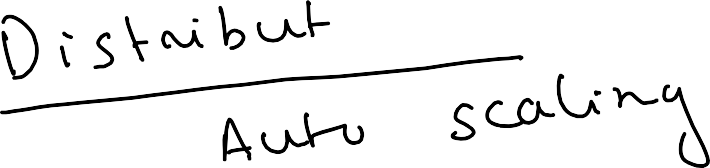 Distribut
Auto scaling